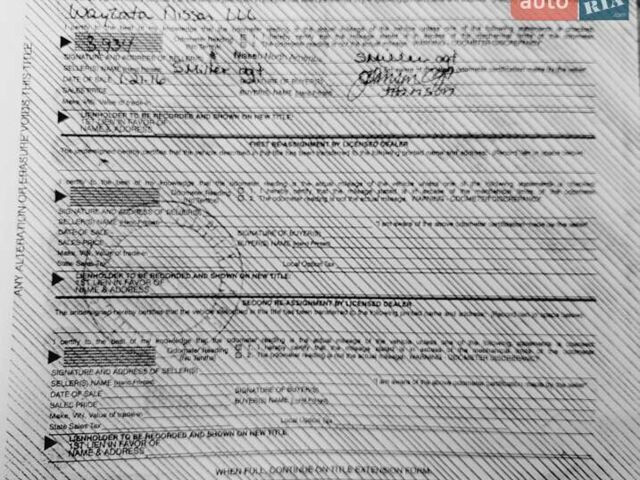 auto RIA .com
Wayzata Nissan LLC
3,934
Odometer Reading
(No Tenths)
SIGNATURE AND ADDRESS OF SELLER(S)
Nissan North America
SMiller agt
SELLER(S) NAME
SMiller agt
DATE OF SALE 1-21-16
SIGNATURE OF BUYER(S)
SALES PRICE
BUYER(S) NAME
Make, VIN, Value of trade-in
LIENHOLDER TO BE RECORDED AND SHOWN ON NEW TITLE:
1ST LIEN IN FAVOR OF
NAME & ADDRESS
FIRST RE-ASSIGNMENT BY LICENSED DEALER
The undersigned hereby certifies that the vehicle described in this title has been transferred to the following printed name and address:
I certify to the best of my knowledge that the odometer reading is the actual mileage of the vehicle unless one of the following statements is checked
Odometer Reading
(No Tenths)
1. I hereby certify that the mileage stated is in excess of the mechanical limits of the odometer
2. The odometer reading is not the actual mileage. WARNING - ODOMETER DISCREPANCY
SIGNATURE AND ADDRESS OF SELLER(S)
SELLER(S) NAME (Hand Printed)
"I am aware of the above odometer certification made by the seller"
DATE OF SALE
SIGNATURE OF BUYER(S)
SALES PRICE
BUYER(S) NAME (Hand Printed)
Make, VIN, Value of trade-in
State Sales Tax
Local Option Tax
LIENHOLDER TO BE RECORDED AND SHOWN ON NEW TITLE:
1ST LIEN IN FAVOR OF
NAME & ADDRESS
SECOND RE-ASSIGNMENT BY LICENSED DEALER
The undersigned hereby certifies that the vehicle described in this title has been transferred to the following printed name and address:
I certify to the best of my knowledge that the odometer reading is the actual mileage of the vehicle unless one of the following statements is checked
Odometer Reading
(No Tenths)
1. I hereby certify that the mileage stated is in excess of the mechanical limits of the odometer
2. The odometer reading is not the actual mileage. WARNING - ODOMETER DISCREPANCY
SIGNATURE AND ADDRESS OF SELLER(S)
SELLER(S) NAME (Hand Printed)
"I am aware of the above odometer certification made by the seller"
DATE OF SALE
SIGNATURE OF BUYER(S)
SALES PRICE
BUYER(S) NAME (Hand Printed)
Make, VIN, Value of trade-in
State Sales Tax
Local Option Tax
LIENHOLDER TO BE RECORDED AND SHOWN ON NEW TITLE:
1ST LIEN IN FAVOR OF
NAME & ADDRESS
WHEN FULL, CONTINUE ON TITLE EXTENSION FORM
ANY ALTERATION OR ERASURE VOIDS THIS TITLE